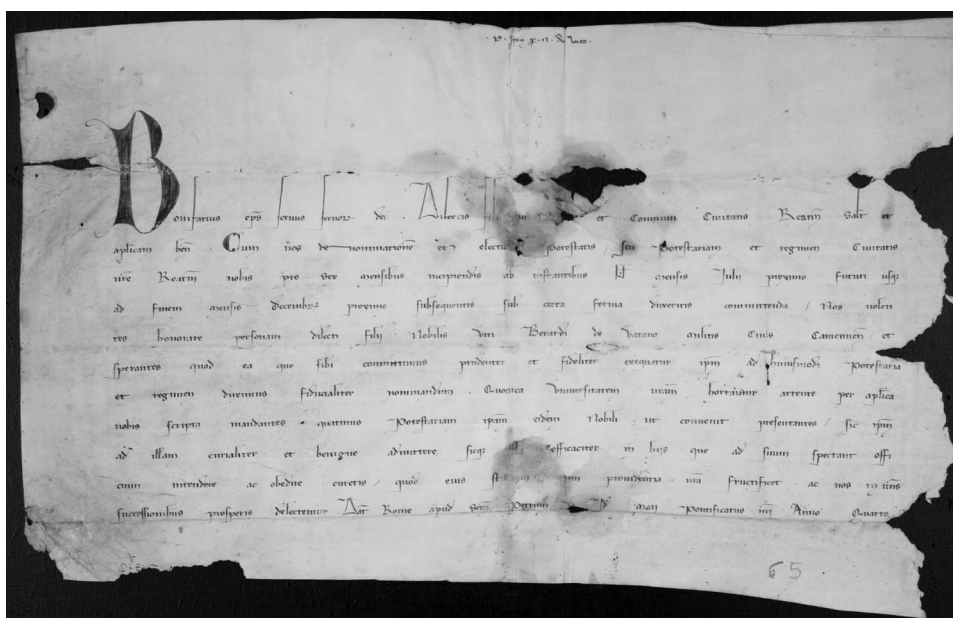 Bonifatius eps servus servor. dei. Dilectis et Comuni Civitatis Reatin Salt et
aplicam ben. Cum nos de nominatione et electione Potestatis seu Potestariam et regimen Civitatis
vre Reatin nobis pro sex mensibus incipiendis ab instantibus kl mensis Julii proximo futuri usq
ad finem mensis decembr proximo subsequentis sub certa forma duxeritis committenda / Nos volen
tes honorare personam dilecti filii Nobilis viri Berardi de Varano militis Civis Camerinen et
sperantes quod ea que sibi committimus prudenter et fideliter exequatur ipm ad huiusmodi Potestaria
et regimen duximus fiducialiter nominandum. Quocirca Universitatem vram hortamur attente per aplica
vobis scripta mandantes quatinus Potestariam ipam eidem Nobili ut convenit presentantes / sic ipm
ad illam curialiter et benigne admittere, sicq efficaciter in hiis que ad suum spectant offi
cium intendere ac obedire curetis / quod eius providentia fructificet ac nos in vris
successionibus prosperis delectemur. Dat Rome apud Scm Petrum maii Pontificatus nri Anno Quarto
65